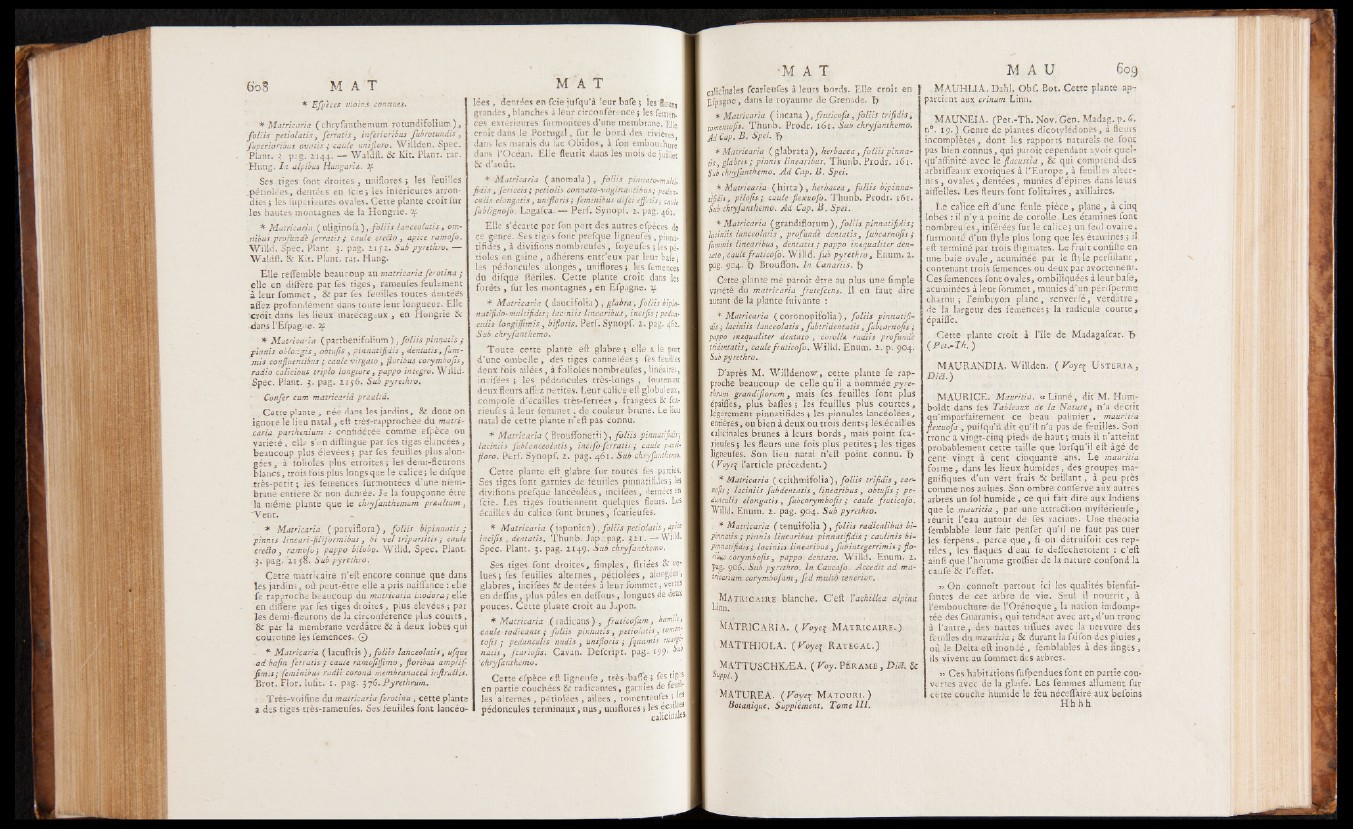 608 M A T
* Espèces moins connues.
* Matricaria (chrysanthemum rotundifolium),
foliis petiolatis, serratis, inferioribus subrotundis,
superioribus ovatis ; caule unifloro. Willden. Spec.
Plant. 3. pag. 2144. — Waldst. & Kit. Plant. rar.
Hung. In alpibus Hungariæ. ♃
Ses tiges sont droites, uniflores ; les feuilles
pétiolées, dentées en scie ; les inférieures arron-
dies ; les supérieures ovales. Cette plante croît sur
les hautes montagnes de la Hongrie. ♃
* Matricaria (uliginosa), foliis lanceolatis, om-
nibus profundè serratis ; caule erecto, apice ramoso.
Willd. Spec. Plant. 3. pag. 2152. Sub pyrethro. —
Waldst. & Kit. Plant. rar. Hung.
Elle ressemble beaucoup au matricaria serotina ;
elle en diffère par ses tiges, rameuses seulement
à leur sommet, & par ses feuilles toutes dentées
assez profondément dans toute leur longueur. Elle
croît dans les lieux marécageux, en Hongrie &
dans l'Espagne. ♃
* Matricaria (parthenifolium), foliis pinnatis ;
pinnis oblongis, obtusis, pinnatifidis, dentatis, sum-
mis confluentibus ; caule virgato, floribus corymbosis,
radio calicibus triplo longiore, pappo integro. Willd.
Spec. Plant. 3. pag. 2156. Sub pyrethro.
Confer cum matricariâ præaltâ.
Cette plante, née dans les jardins, & dont on
ignore le lieu natal, est très-rapprochée du matri-
caria parthenium : considérée comme espèce ou
variété, elle s'en distingue par ses tiges élancées,
beaucoup plus élevées ; par ses feuilles plus alon-
gées, à folioles plus étroites ; les demi-fleurons
blancs, trois fois plus longs que le calice ; le disque
très-petit ; les semences surmontées d'une mem-
brane entière & non dentée. Je la soupçonne être
la même plante que le chrysanthemum præaltum,
Vent.
* Matricaria (parviflora), foliis bipinnatis ;
pinnis lineari-filiformibus, bi vel tripartitis ; caule
erecto, ramoso ; pappo bilobo. Willd. Spec. Plant.
3. pag. 2158. Sub pyrethro.
Cette matricaire n'est encore connue que dans
les jardins, où peut-être elle a pris naissance : elle
se rapproche beaucoup du matricaria inodora ; elle
en diffère par ses tiges droites, plus élevées ; par
les demi-fleurons de la circonférence plus courts,
& par la membrane verdâtre & à deux lobes qui
couronne les semences. ⊙
* Matricaria (lacustris), foliis lanceolatis, usque
ad basin serratis ; caule ramosissimo, floribus amplis-
simis ; seminibus radii coronâ membranaceâ instructis.
Brot. Flor. lusit. 1. pag. 376. Pyrethrum.
Très-voisine du matricaria serotina, cette plante
a des tiges très-rameuses. Ses feuilles sont lancéo-
M A T
lées, dentées en scie jusqu'à leur base ; les fleurs
grandes, blanches à leur circonférence ; les semen-
ces extérieures surmontées d'une membrane. Elle
croît dans le Portugal, sur le bord des rivières,
dans les marais du lac Obidos, à son embouchure
dans l'Océan. Elle fleurit dans les mois de juillet
& d'août.
* Matricaria (anomala), foliis pinnato-multi-
fidis, sericeis ; petiolis connato-vaginantibus ; pedun-
culis elongatis, unifloris ; seminibus disci effœtis ; caule
sublignoso. Lagasca. — Pers. Synops. 2. pag. 461.
Elle s'écarte par son port des autres espèces de
ce genre. Ses tiges sont presque ligneuses, pinna-
tifides, à divisions nombreuses, soyeuses ; les pé-
tioles en gaîne, adhérens entr'eux par leur base ;
les pédoncules alongés, uniflores ; les semences
du disque stériles. Cette plante croît dans les
forêts, sur les montagnes, en Espagne. ♃
* Matricaria (daucifolia), glabra, foliis bipin-
natifido-multifidis ; laciniis linearibus, incisis ; pedun-
culis longissimis, bifloris. Pers. Synops. 2. pag. 462.
Sub chrysanthemo.
Toute cette plante est glabre ; elle a le port
d'une ombelle, des tiges cannelées ; ses feuilles
deux fois ailées, à folioles nombreuses, linéaires,
incisées ; les pédoncules très-longs, soutenant
deux fleurs assez petites. Leur calice est globuleux,
composé d'écailles très-serrées, frangées & sca-
rieuses à leur sommet, de couleur brune. Le lieu
natal de cette plante n'est pas connu.
* Matricaria (Broussonetii), foliis pinnatifidis ;
laciniis sublanceolatis, inciso-serratis ; caule pauci-
floro. Pers. Synops. 2. pag. 461. Sub chrysanthemo.
Cette plante est glabre sur toutes ses parties.
Ses tiges sont garnies de feuilles pinnatifides ; les
divisions presque lancéolées, incisées, dentées en
scie. Les tiges soutiennent quelques fleurs. Les
écailles du calice sont brunes, scarieuses.
* Matricaria (japonica), foliis petiolatis, apice
incisis, dentatis. Thunb. Jap. pag. 321. — Willd.
Spec. Plant. 3. pag. 2149. Sub chrysanthemo.
Ses tiges sont droites, simples, striées & ve-
lues ; ses feuilles alternes, pétiolées, alongées,
glabres, incisées & dentées à leur sommet, vertes
en dessus, plus pâles en dessous, longues de deux
pouces. Cette plante croît au Japon.
* Matricaria (radicans), fruticosum, humile,
caule radicante ; foliis pinnatis, petiolatis, tomen-
tosis ; pedunculis nudis, unifloris ; squamis margi-
natis, scariosis. Cavan. Descript. pag. 199. Sub
chrysanthemo.
Cette espèce est ligneuse, très-basse ; ses tiges
en partie couchées & radicantes, garnies de feuil-
les alternes, pétiolées, ailées, tomenteuses ; les
pédoncules terminaux, nus, uniflores ; les écailles
calicinales
M A T
calicinales scarieuses à leurs bords. Elle croît en
Espagne, dans le royaume de Grenade. ♄
* Matricaria (incana), fruticosa, foliis trifidis,
tomentosis. Thunb. Prodr. 161. Sub chrysanthemo.
Ad Cap. B. Spei. ♄
* Matricaria (glabrata), herbacea, foliis pinna-
tis, glabris ; pinnis linearibus. Thunb. Prodr. 161.
Sub chrysanthemo. Ad Cap. B. Spei.
* Matricaria (hirta), herbacea, foliis bipinna-
tifidis, pilosis ; caule flexuoso. Thunb. Prodr. 161.
Sub chrysanthemo. Ad Cap. B. Spei.
* Matricaria (grandiflorum), foliis pinnatifidis ;
laciniis lanceolatis, profundè dentatis, subcarnosis ;
summis linearibus, dentatis ; pappo inæqualiter den-
tato, caule fruticoso. Willd. sub pyrethro, Enum. 2.
pag. 904. ♄ Brousson. In Canariis. ♄
Cette plante me paroît être au plus une simple
variété du matricaria frutescens. Il en faut dire
autant de la plante suivante :
* Matricaria (coronopifolia), foliis pinnatifi-
dis ; laciniis lanceolatis, subtridentatis, subcarnosis ;
pappo inæqualiter dentato, corollæ radiis profundè
tridentatis, caule fruticoso. Willd. Enum. 2. p. 904.
Sub pyrethro.
D'après M. Willdenow, cette plante se rap-
proche beaucoup de celle qu'il a nommée pyre-
thrum grandiflorum, mais ses feuilles sont plus
épaisses, plus basses ; les feuilles plus courtes,
légèrement pinnatifides ; les pinnules lancéolées,
entières, ou bien à deux ou trois dents ; les écailles
calicinales brunes à leurs bords, mais point sca-
rieuses ; les fleurs une fois plus petites ; les tiges
ligneuses. Son lieu natal n'est point connu. ♄
(Voyez l'article précédent.)
* Matricaria (crithmifolia), foliis trifidis, car-
nosis ; laciniis subdentatis, linearibus, obtusis ; pe-
dunculis elongatis, subcorymbosis ; caule fruticoso.
Willd. Enum. 2. pag. 904. Sub pyrethro.
* Matricaria (tenuifolia), foliis radicalibus bi-
pinnatis ; pinnis linearibus pinnatifidis ; caulinis bi-
pinnatifidis ; laciniis linearibus, subintegerrimis ; flo-
ribus corymbosis, pappo dentato. Willd. Enum. 2.
pag. 906. Sub pyrethro. In Caucaso. Accedit ad ma-
tricariam corymbosam, sed multò tenerior.
MATRICAIRE blanche. C'est l'achillea alpina
Linn.
MATRICARIA. (Voyez MATRICAIRE.)
MATTHIOLA. (Voyez RATEGAL.)
MATTUSCHKÆA. (Voy. PÉRAME, Dict. &
Suppl.)
MATUREA. (Voyez MATOURI.)
Botanique. Supplément. Tome III.
M A U 609
MAUHLIA. Dahl. Obs. Bot. Cette plante ap-
partient aux crinum Linn.
MAUNEIA. (Pet.-Th. Nov. Gen. Madag. p. 6.
n°. 19.) Genre de plantes dicotylédones, à fleurs
incomplètes, dont les rapports naturels ne sont
pas bien connus, qui paroît cependant avoir quel-
qu'affinité avec le flacurtia, & qui comprend des
arbrisseaux exotiques à l'Europe, à feuilles alter-
nes, ovales, dentées, munies d'épines dans leurs
aisselles. Les fleurs sont solitaires, axillaires.
Le calice est d'une seule pièce, plane, à cinq
lobes : il n'y a point de corolle. Les étamines sont
nombreuses, insérées sur le calice ; un seul ovaire,
surmonté d'un style plus long que les étamines ; il
est terminé par trois stigmates. Le fruit consiste en
une baie ovale, acuminée par le style persistant,
contenant trois semences ou deux par avortement.
Ces semences sont ovales, ombiliquées à leur base,
acuminées à leur sommet, munies d'un périsperme
charnu ; l'embryon plane, renversé, verdâtre,
de la largeur des semences ; la radicule courte,
épaisse.
Cette plante croît à l'île de Madagascar. ♄
(Pet.-Th.)
MAURANDIA. Willden. (Voyez USTERIA,
Dict.)
MAURICE. Mauritia. « Linné, dit M. Hum-
boldt dans ses Tableaux de la Nature, n'a décrit
qu'imparfaitement ce beau palmier, mauritia
flexuosa, puisqu'il dit qu'il n'a pas de feuilles. Son
tronc a vingt-cinq pieds de haut ; mais il n'atteint
probablement cette taille que lorsqu'il est âgé de
cent vingt à cent cinquante ans. Le mauritia
forme, dans les lieux humides, des groupes ma-
gnifiques d'un vert frais & brillant, à peu près
comme nos aulnes. Son ombre conserve aux autres
arbres un sol humide, ce qui fait dire aux Indiens
que le mauritia, par une attraction mystérieuse,
réunit l'eau autour de ses racines. Une théorie
semblable leur fait penser qu'il ne faut pas tuer
les serpens, perce que, si on détruisoit ces rep-
tiles, les flaques d'eau se dessécheroient : c'est
ainsi que l'homme grossier de la nature confond la
cause & l'effet.
» On connoît partout ici les qualités bienfai-
santes de cet arbre de vie. Seul il nourrit, à
l'embouchure de l'Orénoque, la nation indomp-
tée des Guaranis, qui tendant avec art, d'un tronc
à l'autre, des nattes tissues avec la nervure des
feuilles du mauritia ; & durant la saison des pluies,
où le Delta est inondé, semblables à des singes,
ils vivent au sommet des arbres.
» Ces habitations suspendues sont en partie cou-
vertes avec de la glaise. Les femmes allument sur
cette couche humide le feu nécessaire aux besoins
H h h h